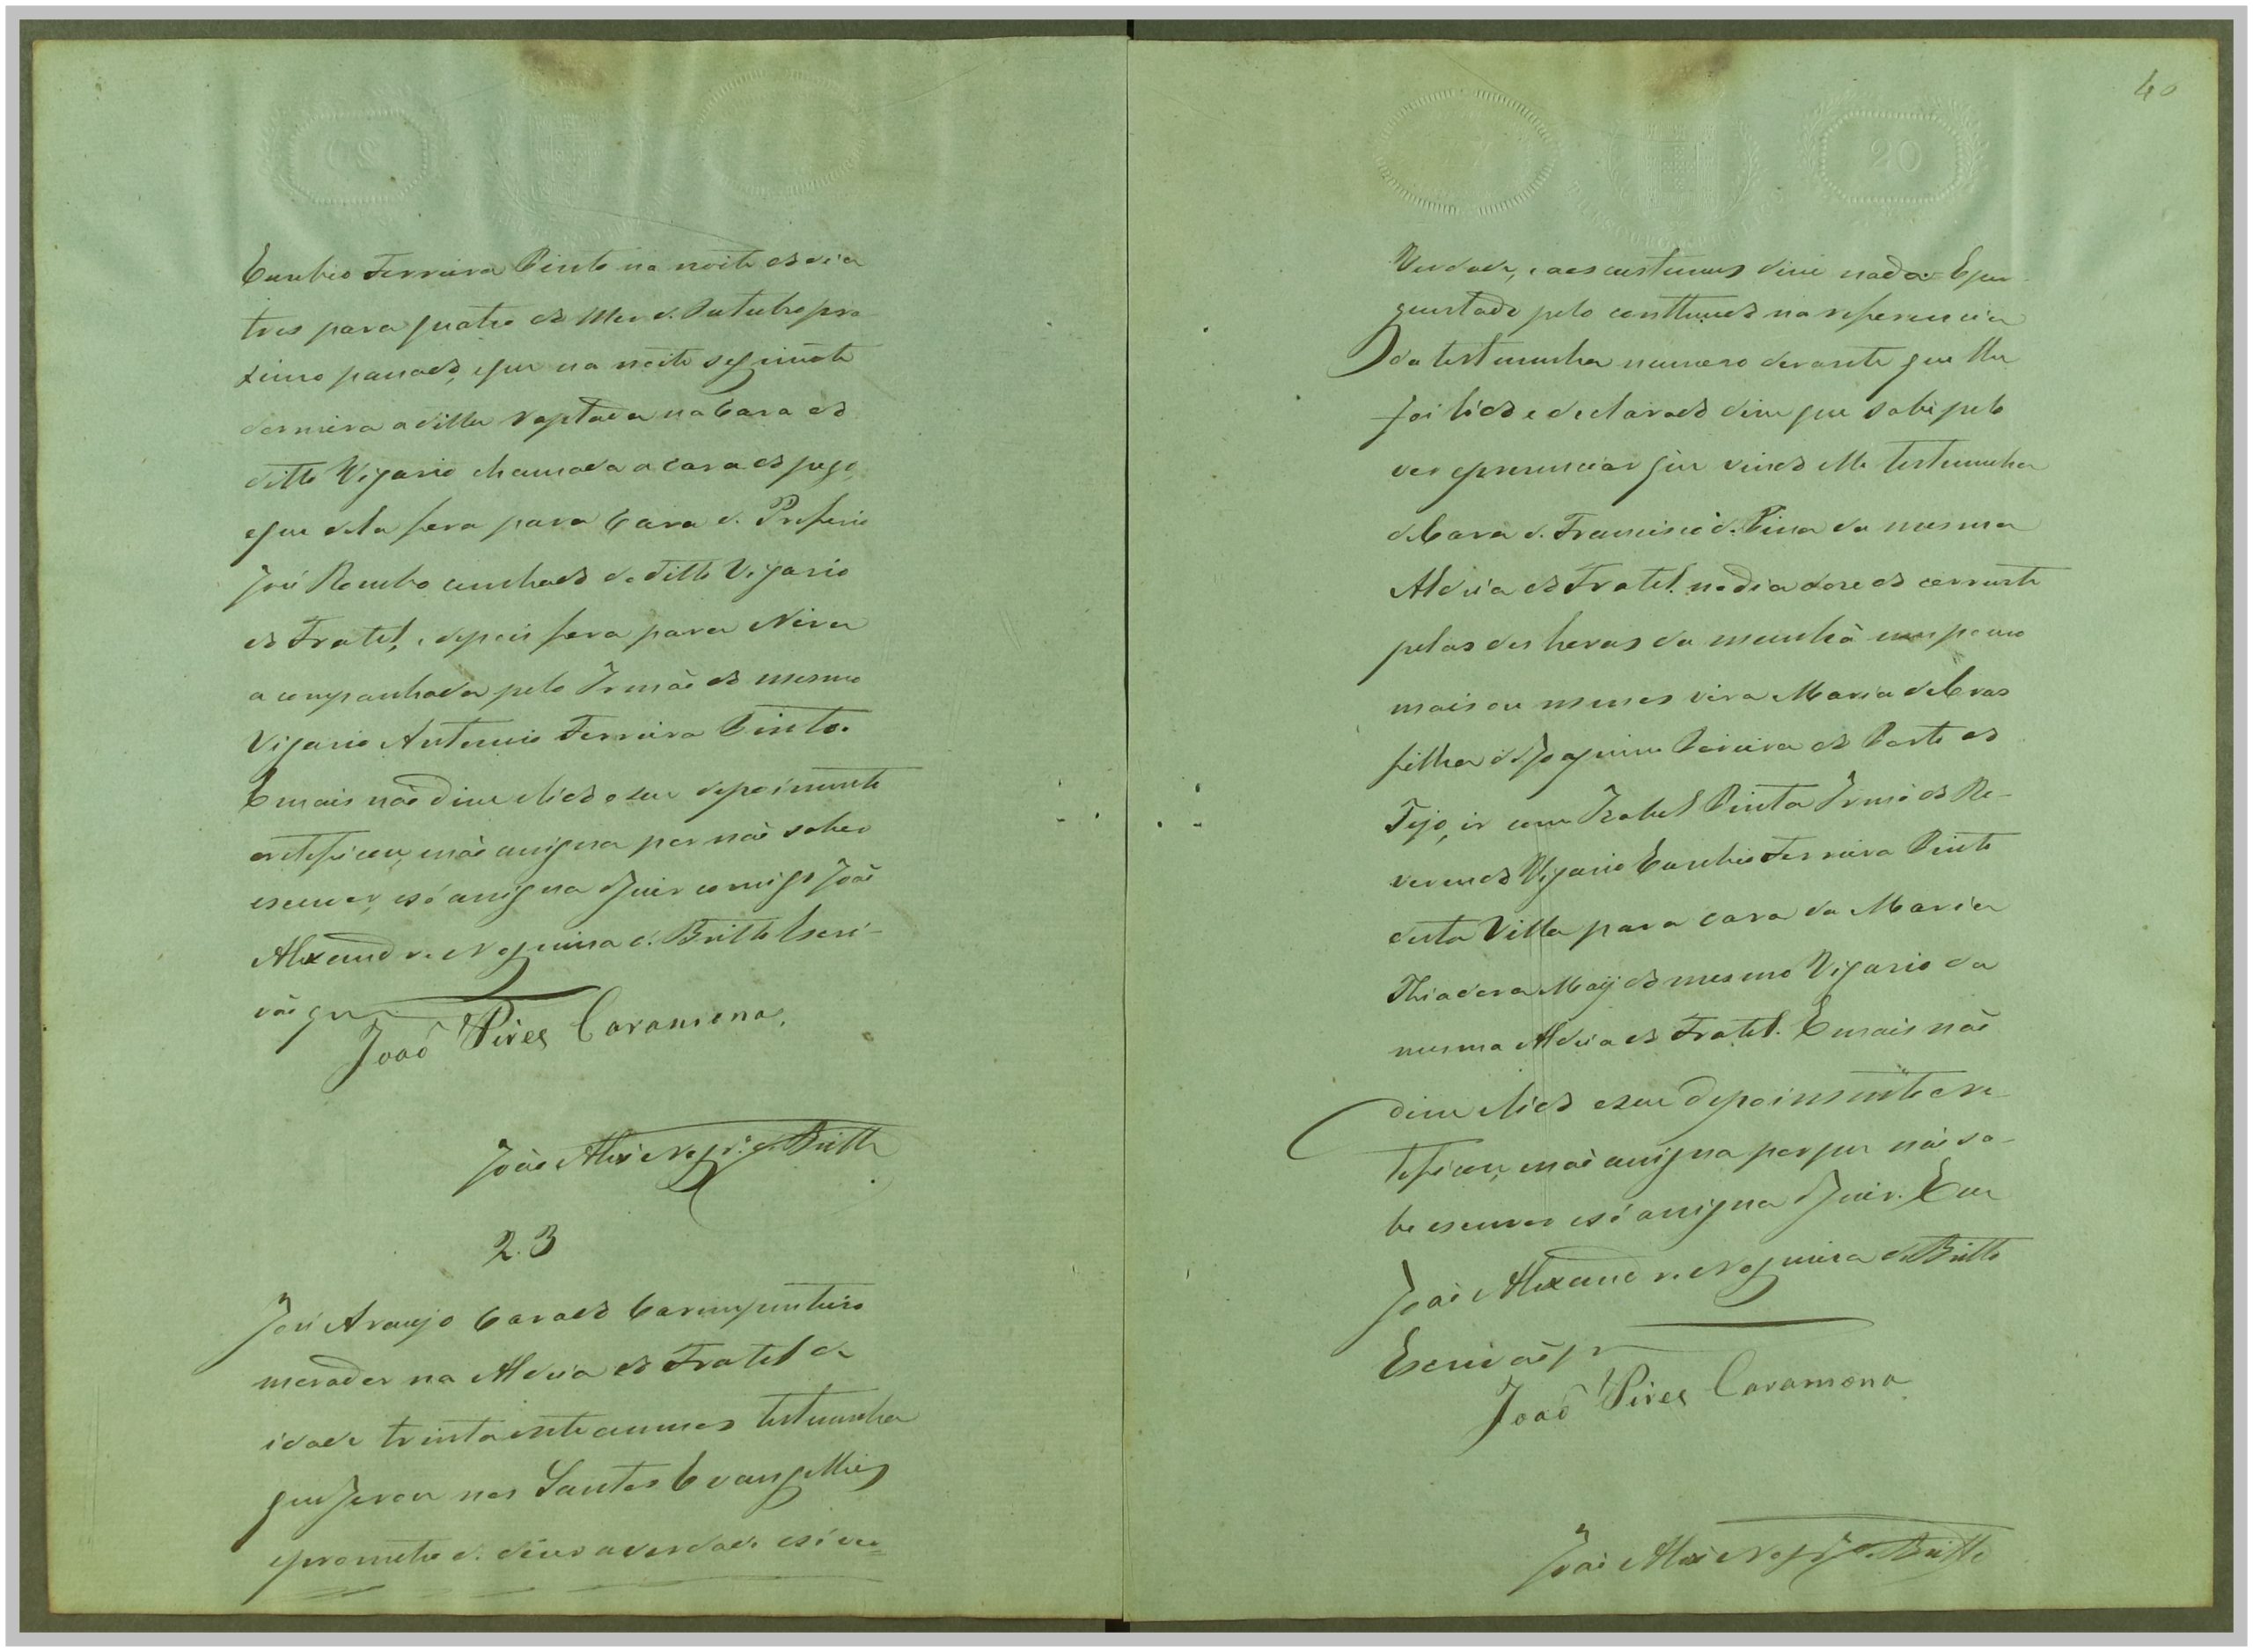 Euzebio Ferreira Pinto na noite do dia
tres para quatro do Mez de Outubro pro
ximo passado, e que na noite seguinte
dormira a ditta raptada na Caza do
ditto Vigario chamada a caza do
e que dela fora para Caza de
José Rombo cunhado do ditto Vigario
do Fratel, e depois fora para Niza
acompanhada pelo Irmão do mesmo
Vigario Antonio Ferreira Pinto.
E mais não disse e lido o seu depoimento
o retificou, e não assigna por não saber
escrever, e só assigna o Juiz comigo João
Alexandre Nogueira de Britto Escri-
vão que
João Pires Caramona.
João Alexe Nogra de Britto
23
José Araujo Cazado Carumpenteiro
morador na Aldeia do Fratel de
idade trinta e sete annos testemunha
que Jurou nos Santos Evangelhos
e prometeo de dizer a verdade e só ver=
40
Verdade, e aos custumes disse nada= E per-
guntado pelo conttheudo na referencia
da testemunha numero dezasete que lhe
foi lido e declarado disse que sabe pelo
ver e prezenciar que vindo elle testemunha
de Caza de Francisco de Pina da mesma
Aldeia do Fratel no dia doze do corrente
pelas des horas da manhã pouco
mais ou menos vira Maria
filha de Joaquim Pereira do Porto do
Tejo, ir com Izabel Pinta Irmã do Re-
verendo Vigario Euzebio Ferreira Pinto
desta Villa para caza da Maria
Thiadora Maÿ do mesmo Vigario da
mesma Aldeia do Fratel. E mais não
disse e lido o seu depoimento o re-
tificou, e não assigna porque não sa-
be escrever e só assigna o Juiz. Eu
João Alexandre Nogueira de Britto
Escrivão
João Pires Caramona
João Alexe Nogra de Britto
20